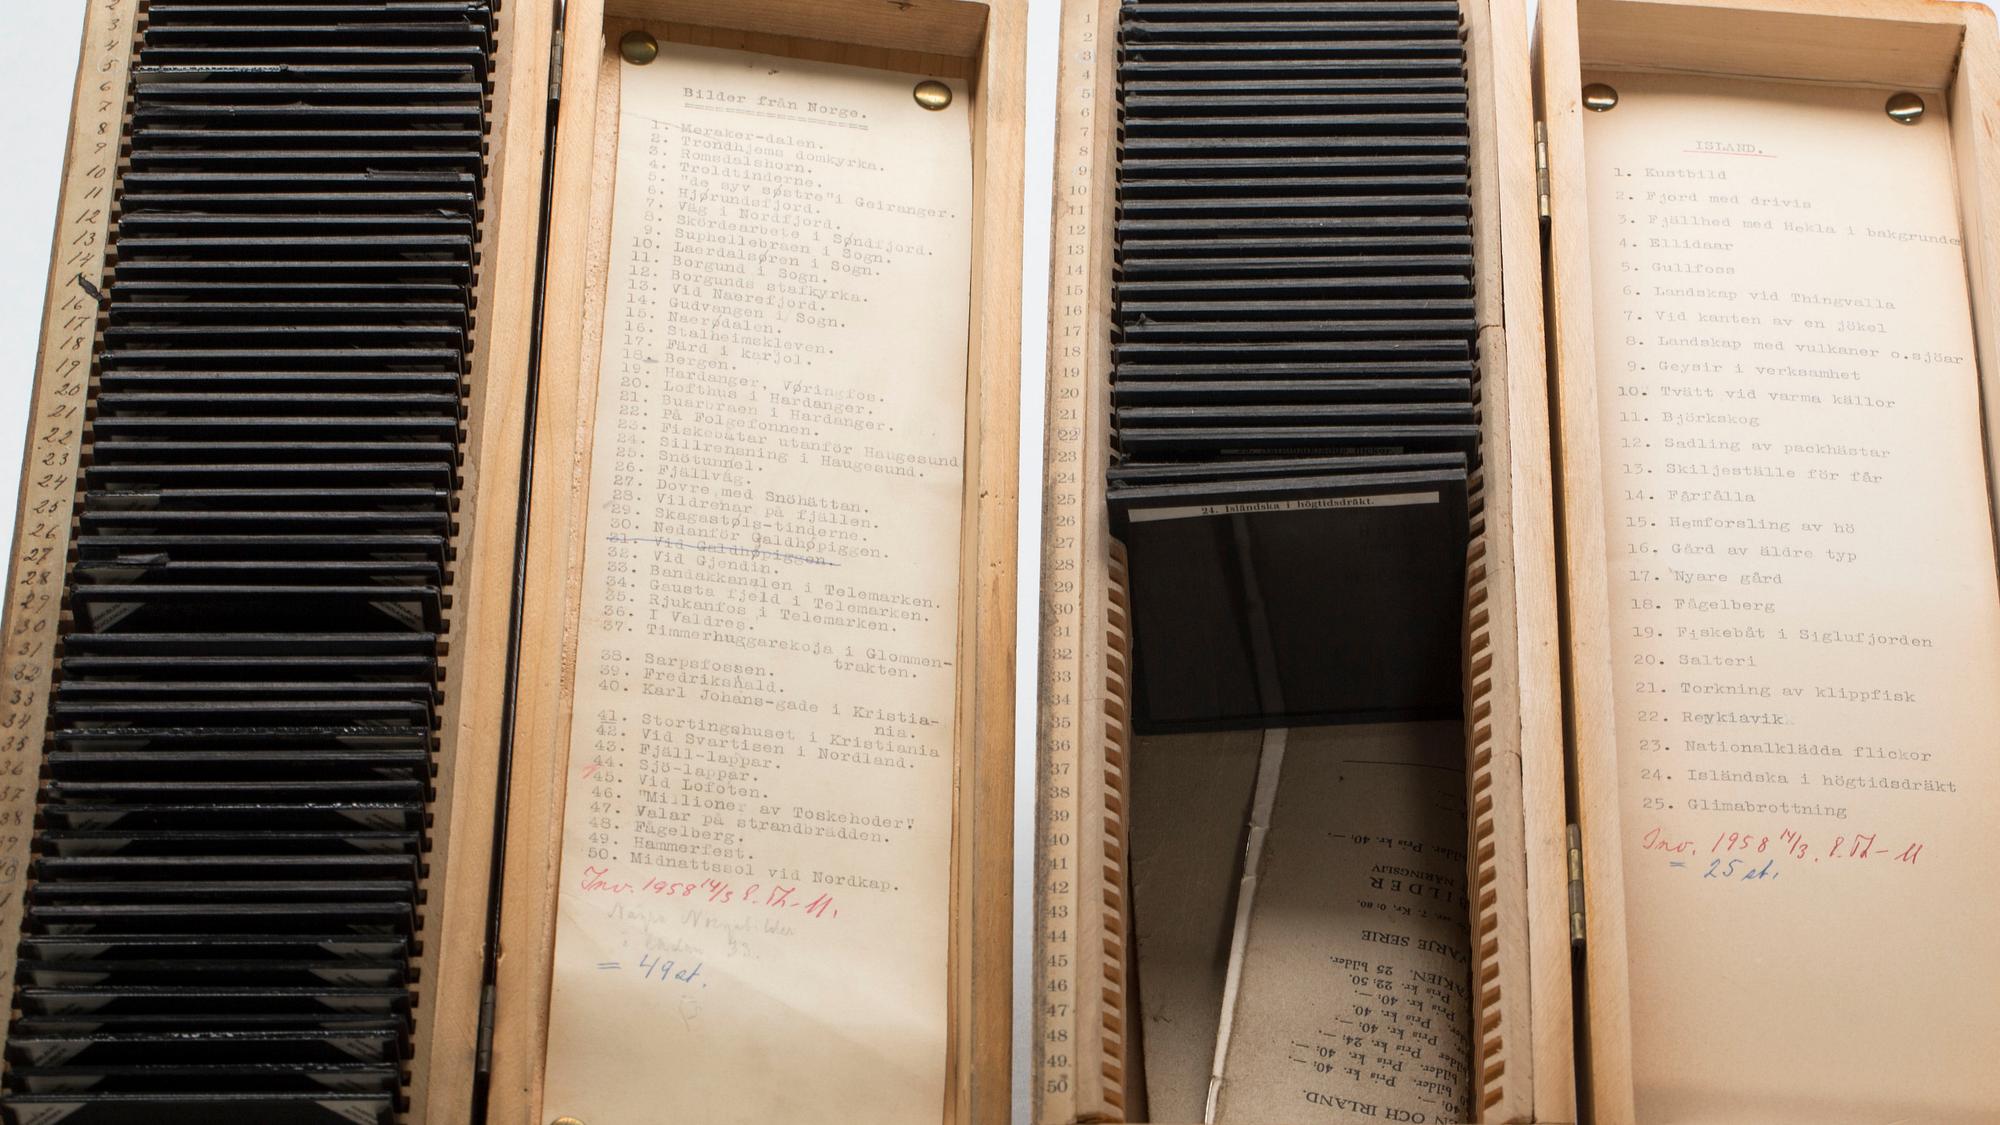 Bilder från Norge.
1. Meraker-dalen.
2. Trondhjems domkyrka.
3. Romsdalshorn.
4. Troldtinderne.
5. "de syv søstre" i Geiranger.
6. Hjørundsfjord.
7. Väg i Nordfjord.
8. Skördearbete i Søndfjord.
9. Suphellebraen i Sogn.
10. Laerdalsøren i Sogn.
11. Borgund i Sogn.
12. Borgunds stafkyrka.
13. Vid Naerefjord.
14. Gudvangen i Sogn.
15. Naerødalen.
16. Stalheimskleven.
17. Färd i karjol.
18. Bergen.
19. Hardanger, Vøringfos.
20. Lofthus i Hardanger.
21. Buarbraen i Hardanger.
22. På Folgefonnen.
23. Fiskebåtar utanför Haugesund
24. Sillrensning i Haugesund.
25. Snötunnel.
26. Fjällväg.
27. Dovre med Snöhättan.
28. Vildrenar på fjällen.
29. Skagastøls-tinderne.
30. Nedanför Galdhøpiggen.
31. Vid Galdhøpiggen.
32. Vid Gjendin.
33. Bandakkanalen i Telemarken.
34. Gausta fjeld i Telemarken.
35. Rjukanfos i Telemarken.
36. I Valdres.
37. Timmerhuggarekoja i Glommen-
trakten.
38. Sarpsfossen.
39. Fredrikshald.
40. Karl Johans-gade i Kristia-
nia.
41. Stortingshuset i Kristiania
42. Vid Svartisen i Nordland.
43. Fjäll-lappar.
44. Sjö-lappar.
45. Vid Lofoten.
46. "Millioner av Toskehoder"!
47. Valar på strandbrädden.
48. Fågelberg.
49. Hammerfest.
50. Midnattssol vid Nordkap.
Inv. 1958 14/3 P. Th-M.
Några Norgebilder
= 49 st.
ISLAND.
1. Kustbild
2. Fjord med drivis
3. Fjällhed med Hekla i bakgrunden
4. Ellidaar
5. Gullfoss
6. Landskap vid Thingvalla
7. Vid kanten av en jökel
8. Landskap med vulkaner o.sjöar
9. Geysir i verksamhet
10. Tvätt vid varma källor
11. Björkskog
12. Sadling av packhästar
13. Skiljeställe för får
14. Fårfålla
15. Hemforsling av hö
16. Gård av äldre typ
17. Nyare gård
18. Fågelberg
19. Fiskebåt i Siglufjorden
20. Salteri
21. Torkning av klippfisk
22. Reykiavik
23. Nationalklädda flickor
24. Isländska i högtidsdräkt
25. Glimabrottning
Inv. 1958 14/3. P. Th-M
= 25 st.
24. Isländska i högtidsdräkt.